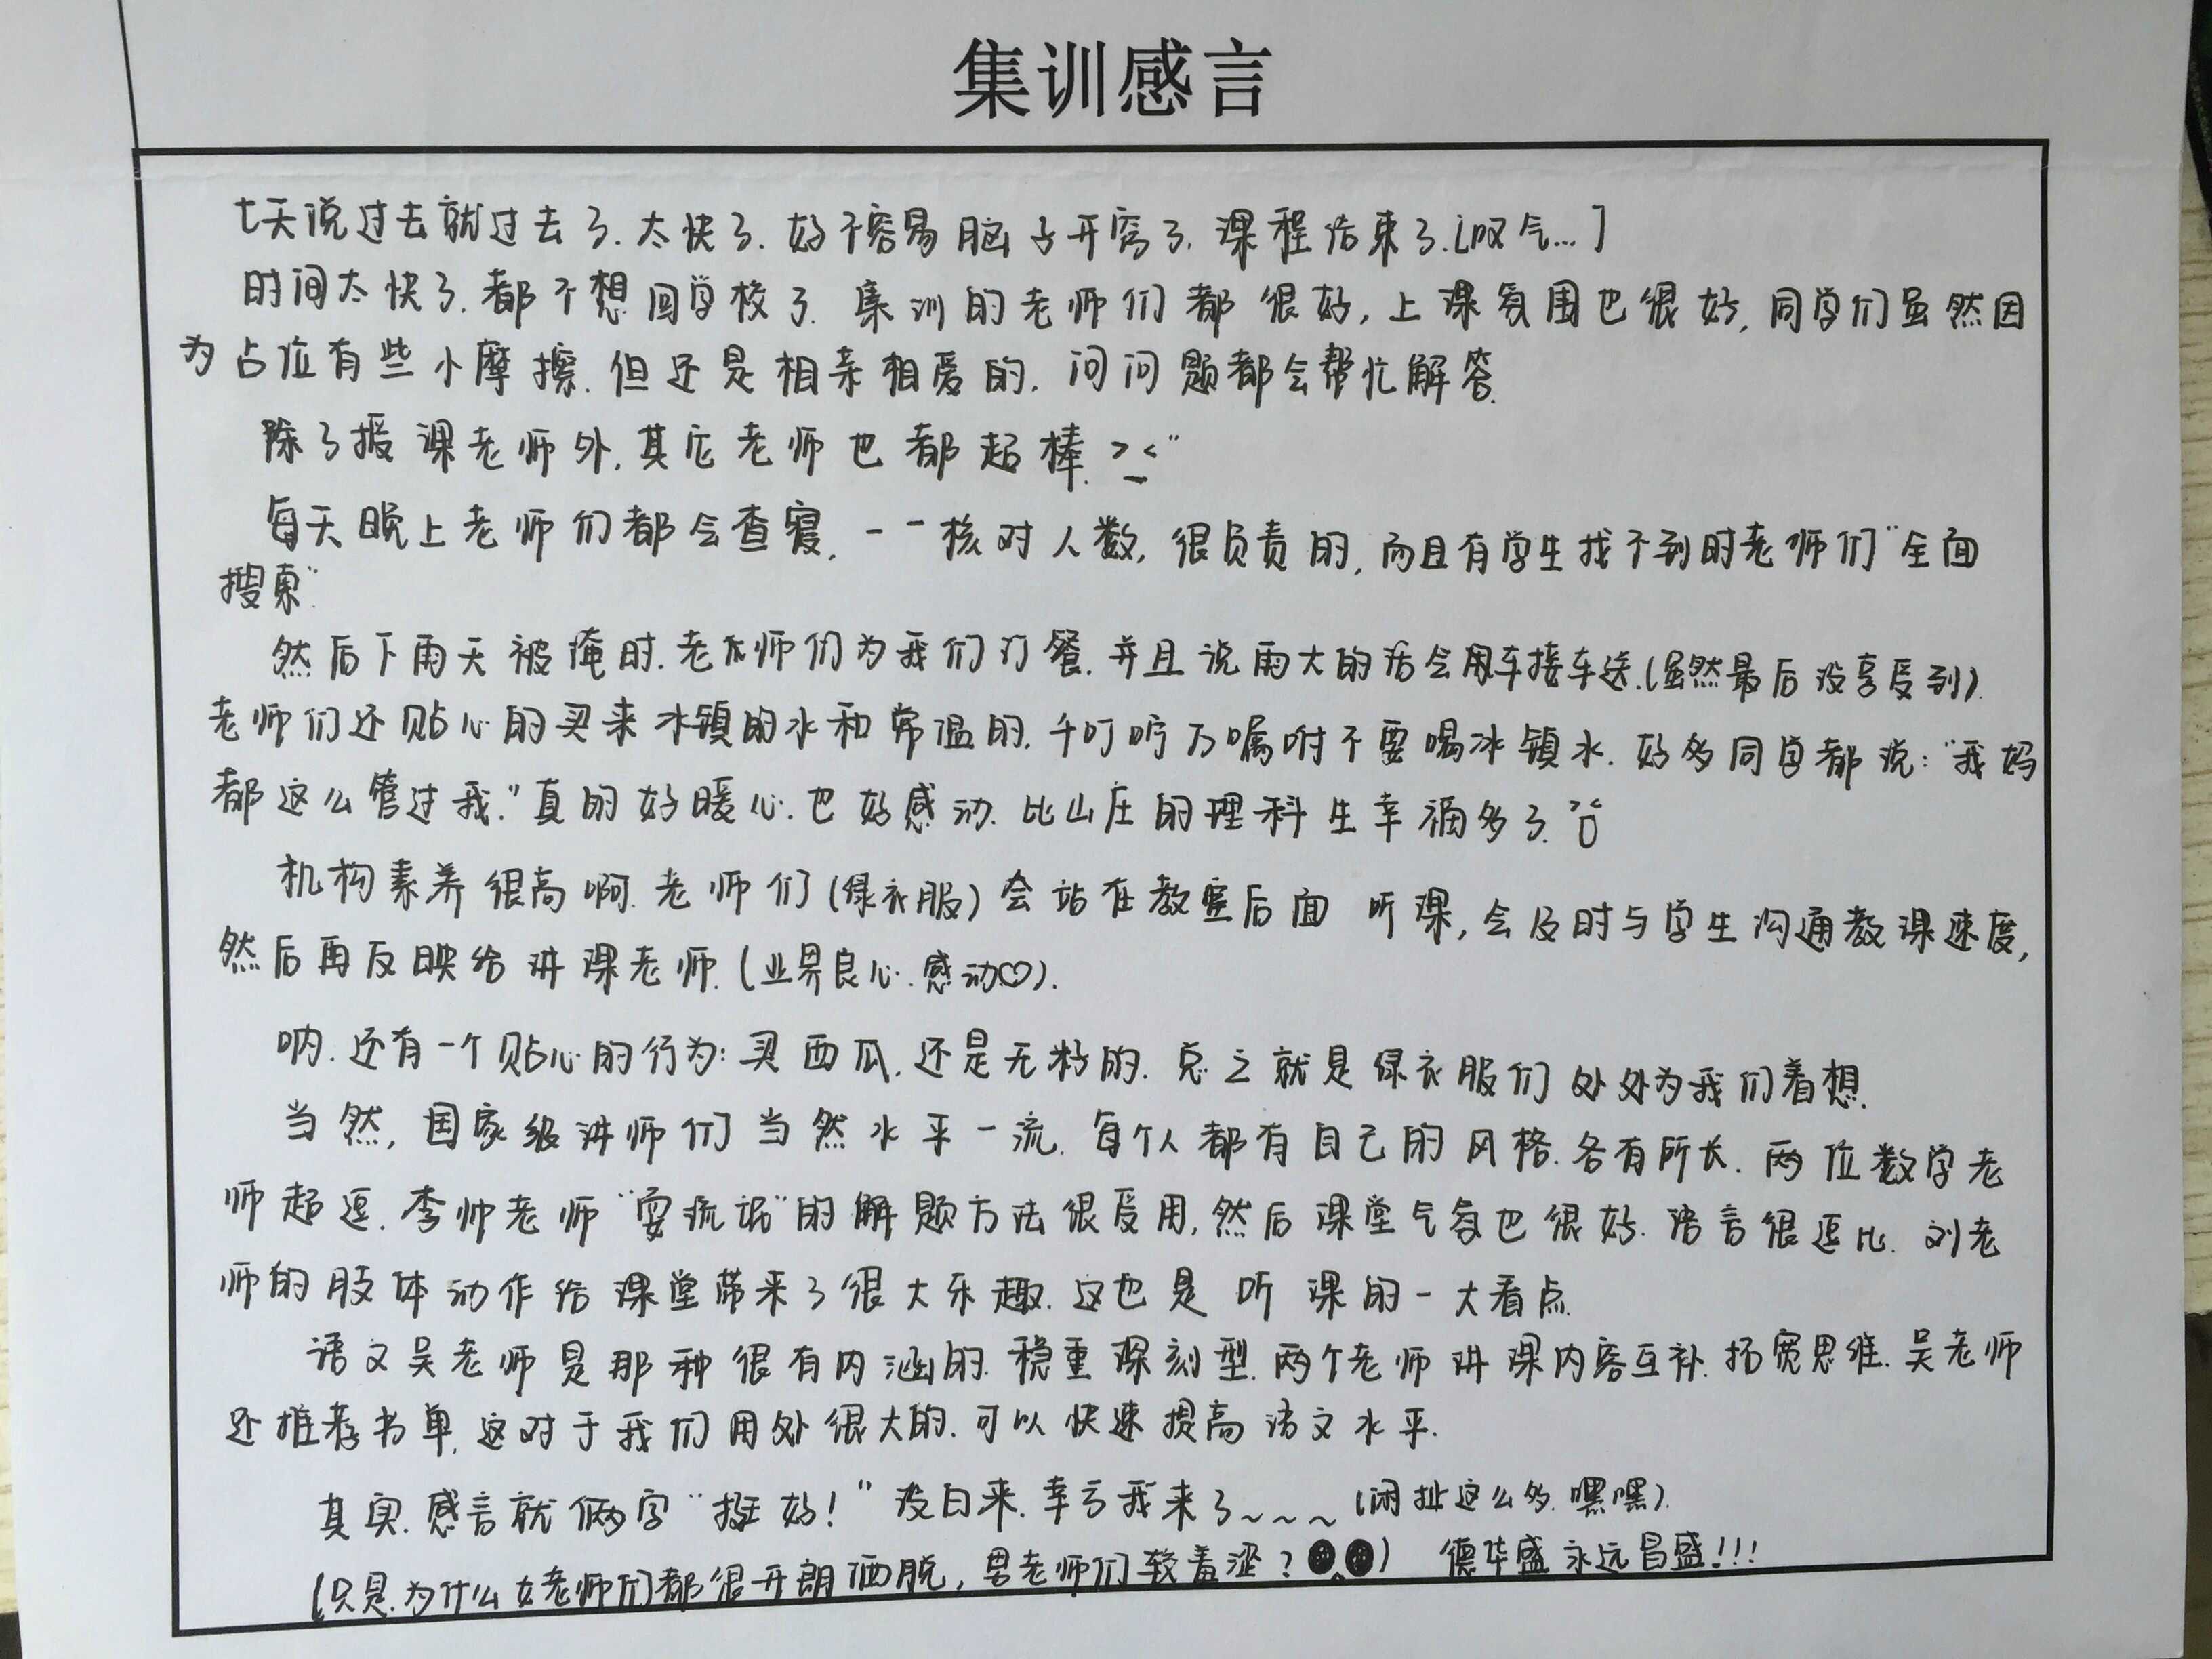 集训感言
七天说过去就过去了.太快了.好不容易脑子开窍了,课程结束了.[叹气...]
时间太快了.都不想回学校了.集训的老师们都很好,上课氛围也很好,同学们虽然因
为占位有些小摩擦.但还是相亲相爱的.问问题都会帮忙解答.
除了授课老师外,其它老师也都超棒.>_<"
每天晚上老师们都会查寝,一一核对人数,很负责的,而且有学生找不到时老师们"全面
搜索"
然后下雨天被淹时.老师们为我们订餐.并且说雨大的话会用车接车送.(虽然最后没享受到)
老师们还贴心的买来冰镇的水和常温的.千叮咛万嘱咐不要喝冰镇水.好多同学都说:"我妈
都这么管过我."真的好暖心.也好感动.比山庄的理科生幸福多了.
机构素养很高啊.老师们(绿衣服)会站在教室后面 听课,会及时与学生沟通教课速度,
然后再反映给讲课老师.(业界良心.感动♡).
呐.还有一个贴心的行为:买西瓜.还是无籽的.总之就是绿衣服们处处为我们着想.
当然,国家级讲师们当然水平一流.每个人都有自己的风格.各有所长.两位数学老
师超逗.李帅老师"耍流氓"的解题方法很受用,然后课堂气氛也很好.语言很逗比.刘老
师的肢体动作给课堂带来了很大乐趣.这也是听课的一大看点.
语文吴老师是那种很有内涵的.稳重深刻型.两个老师讲课内容互补.拓宽思维.吴老师
还推荐书单.这对于我们用处很大的.可以快速提高语文水平.
其实.感言就俩字"挺好!"没白来.幸亏我来了~~~(闲扯这么多.嘿嘿).
(只是.为什么女老师们都很开朗洒脱,男老师们较羞涩?) 德华盛永远昌盛!!!